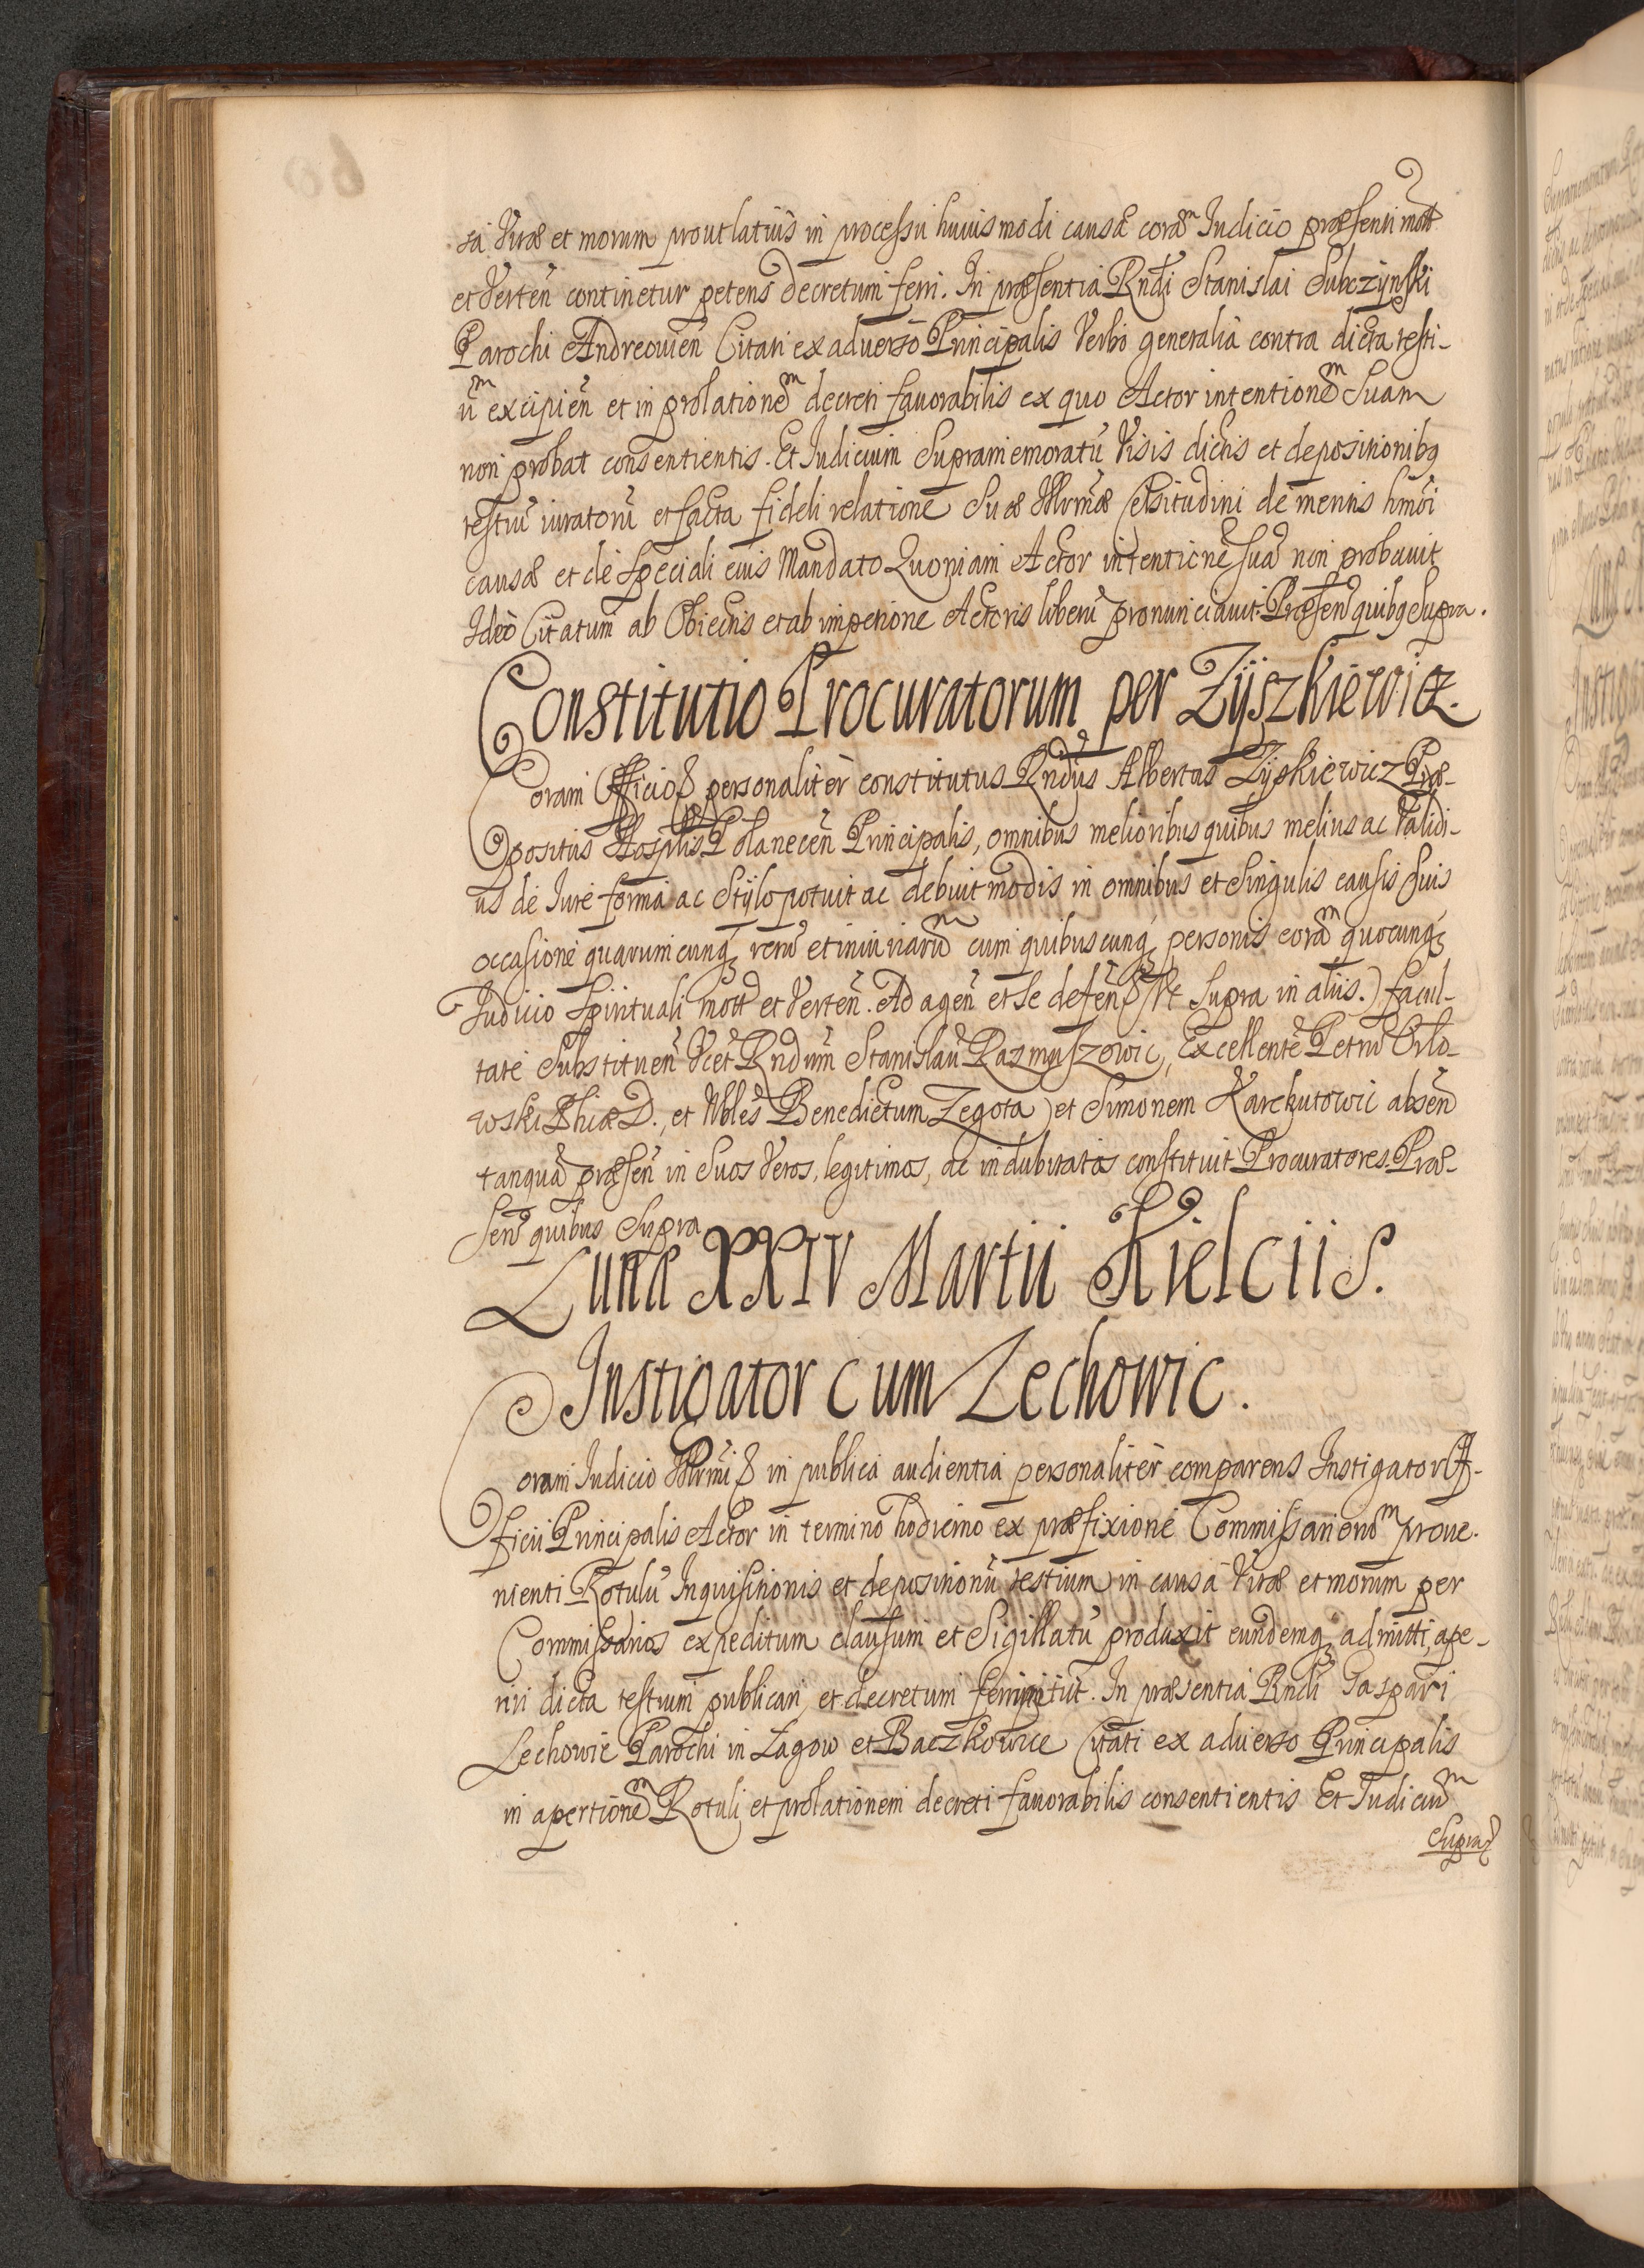 sa Vitæ et morum prout latius in processu huiusmodi causæ corã Iudicio præsenti mott
et Verteñ continetur petens decretum ferri. In præsentia Rndi Stanislai Subczÿnski
Parochi Andreouieñ Citati ex aduerso Principalis Verbo generalia contra dicta testi-
ũ excipieñ et in prolationẽ decreti fauorabilis ex quo Actor intentionẽ Suam
non probat consentientis. Et Iudicium Supramemoratũ Visis dictis et depositionibq
testiũ iuratorũ et facta fideli relatione Suæ Illrmæ Celsitudini de meritis hmõi
causæ et de Speciali eius Mandato Quoniam Actor intentionẽ suã non probauit
Ideo Citatum ab Obiectis et ab impetitione Actoris liberũ pronunciauit. Præseñ quibq Supra.
Constitutio Procuratorum per Zÿszkiewicz.
Coram Officio personaliter constitutus Rndus Albertus Zÿskiewicz Præ-
positus Hosplis Polaneceñ Principalis, omnibus melioribus quibus melius ac Validi-
us de Iure forma ac Stÿlo potuit ac debuit modis in omnibus et Singulis causis Suis
occasione quarumcunq rerũ et iniuriarũ cum quibuscunq personis corã quocunq
Iudicio Spirituali mott et Verteñ. Ad ageñ et Se defeñ (Vt Supra in aliis.) facul-
tate Substitueñ Vcet Rndum Stanislaũ Razmuszowic, Excellentẽ Petrũ Orlo-
wski Phiæ D., et Nbles Benedictum Zegota et Simonem Karchutowic abseñ
tanquã præseñ in Suos Veros, legitimos, ac indubitatos constituit Procuratores. Præ-
señ quibus Supra
Luna XXIV Martii Kielciis.
Instigator cum Lechowic.
Coram Iudicio Illrmi in publica audientia personaliter comparens Instigator Of-
ficii Principalis Actor in termino hodierno ex præfixione Commissariorũ proue-
nienti Rotulũ Inquisitionis et depositionũ testium in causa Vitæ et morum per
Commissarios expeditum clausum et Sigillatũ produxit eundemq admitti, ape-
riri dicta testium publicari, et decretum ferri petiit. In præsentia Rndi Gaspari
Lechowic Parochi in Lagow et Baczkowice Citati ex aduerso Principalis
in apertionẽ Rotuli, et prolationem decreti fauorabilis consentientis Et Iudiciũ
Supra